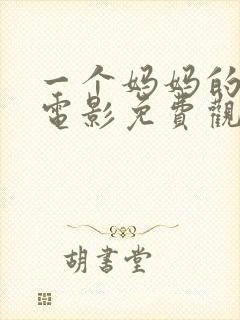 一个妈妈的
電影免費觀
胡書堂